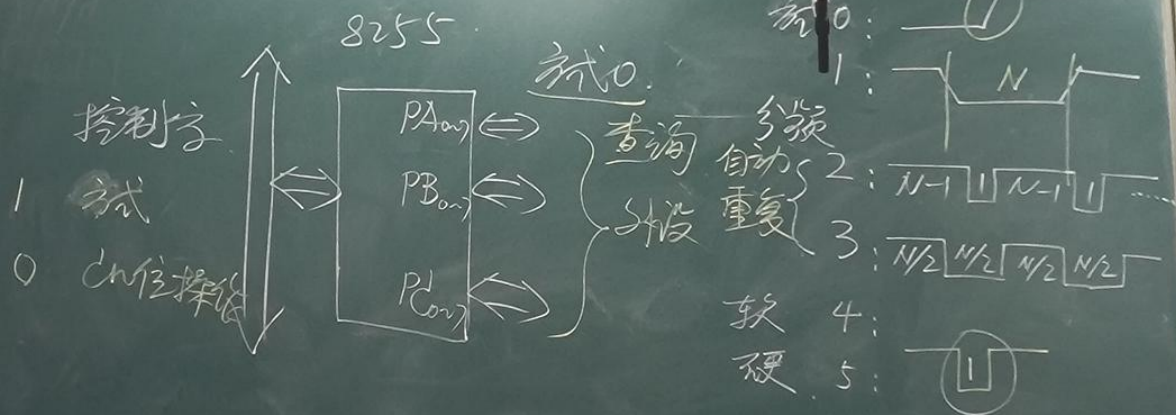 8255
方式0.
控制字
1 方式
0 Cn位操作
PA0~7
PB0~7
PC0~7
查询
外设
分频
自动
重复
方式0:
1: N
2: N-1 1 N-1 1 ……
3: N/2 N/2 N/2 N/2
软 4:
硬 5: 1